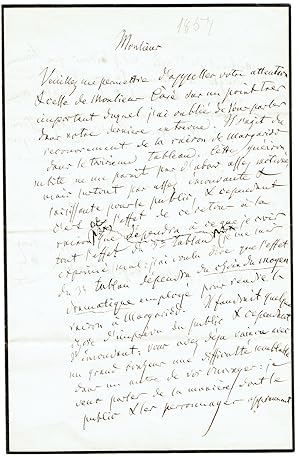 1859
Monsieur
Veuillez me permettre d'appeller votre attention
& celle de Monsieur Carré sur un point très
important duquel j'ai oublié de vous parler
dans notre dernière entrevue. Il s'agit du
recouvrement de la raison de Margarido
dans le troisième tableau. Cette guérison
subite ne me paraît pas d'abord assez motivée
mais surtout pas assez émouvante &
saisissante pour le public, & cependant
c'est de l'effet de ce retour à la
raison que dépendra à ce que je crois
tout l'effet du 3e tableau je me suis
exprimé mal; j'ai voulu dire que l'effet
du 3e tableau dépendra du choix du moyen
dramatique employé pour rendre la
raison à Margarido. Il faudrait quelque
chose d'imprévu du public & cependant
d'émouvant; vous avez déjà vaincu avec
un grand bonheur une difficulté semblable
dans un autre de vos ouvrages: je
veux parler de la manière dont le
public & les personnages apprennent